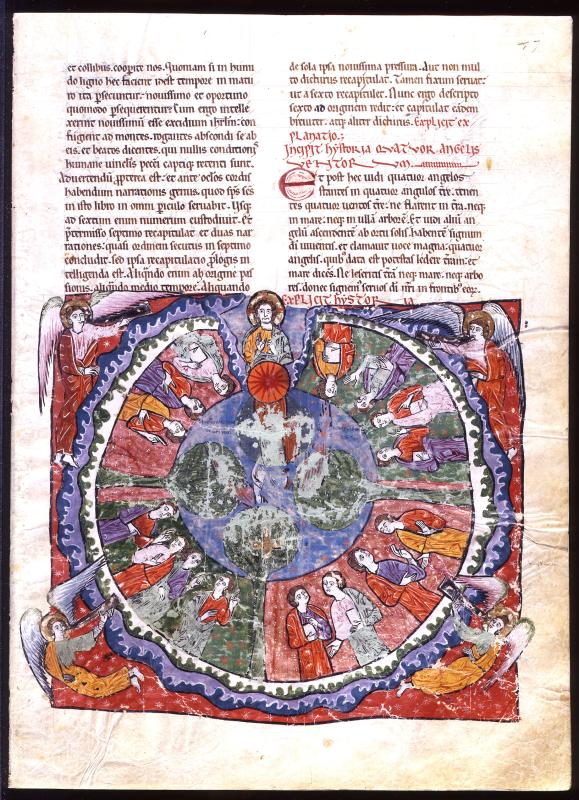 et collibus. cooperite nos. Quoniam si in humi
do ligno hec faciunt
quomodo persequentur. Cum ergo intelle
xerint novissimum esse excidium
fugient ad montes. rogantes abscondi se ab
eis. et beatos dicentes, qui nullis conditionis
humane vinculis
Advertendum, propterea est. et ante oculos cordis
habendum narrationis genus. quod sps scs
in isto libro in omni periculo servabit. Usq;
ad sextum enim numerum custodivit. Et
pretermisso septimo recapitulat. et duas nar
rationes. quasi ordinem secutus in septimo
concludit. sed ipsa recapitulacio
telligenda est. Aliqndo enim ab origine pas
sionis. aliqndo medio tempore. Aliquando
de sola ipsa novissima pressura. Aut non mul
to dicturus recapitulat. Tamen fixum servat:
ut a sexto recapitulet. Nunc ergo descripto
sexto ad originem redit: et capitulat eadem
breviter. atq; aliter dicturus. Explicit ex
planatio.:
Incipit hystoria quatuor angelis
ventorum
Et post hec vidi quatuor angelos
stantes in quatuor angulos tre. tenen
tes quatuor ventos tre: ne flarent in tra. neq;
in mare. neq; in ullam arbore. Et vidi aliu an
gelu ascendente ab ortu solis. habente signum
di viventis. et clamavit voce magna: quatuor
angelis. quib; data est potestas ledere tram: et
mare dices. Ne leseritis tra neq; mare. neq; arbo
res. donec signem servos di nri in frontib; eor.
Explicit hystoria